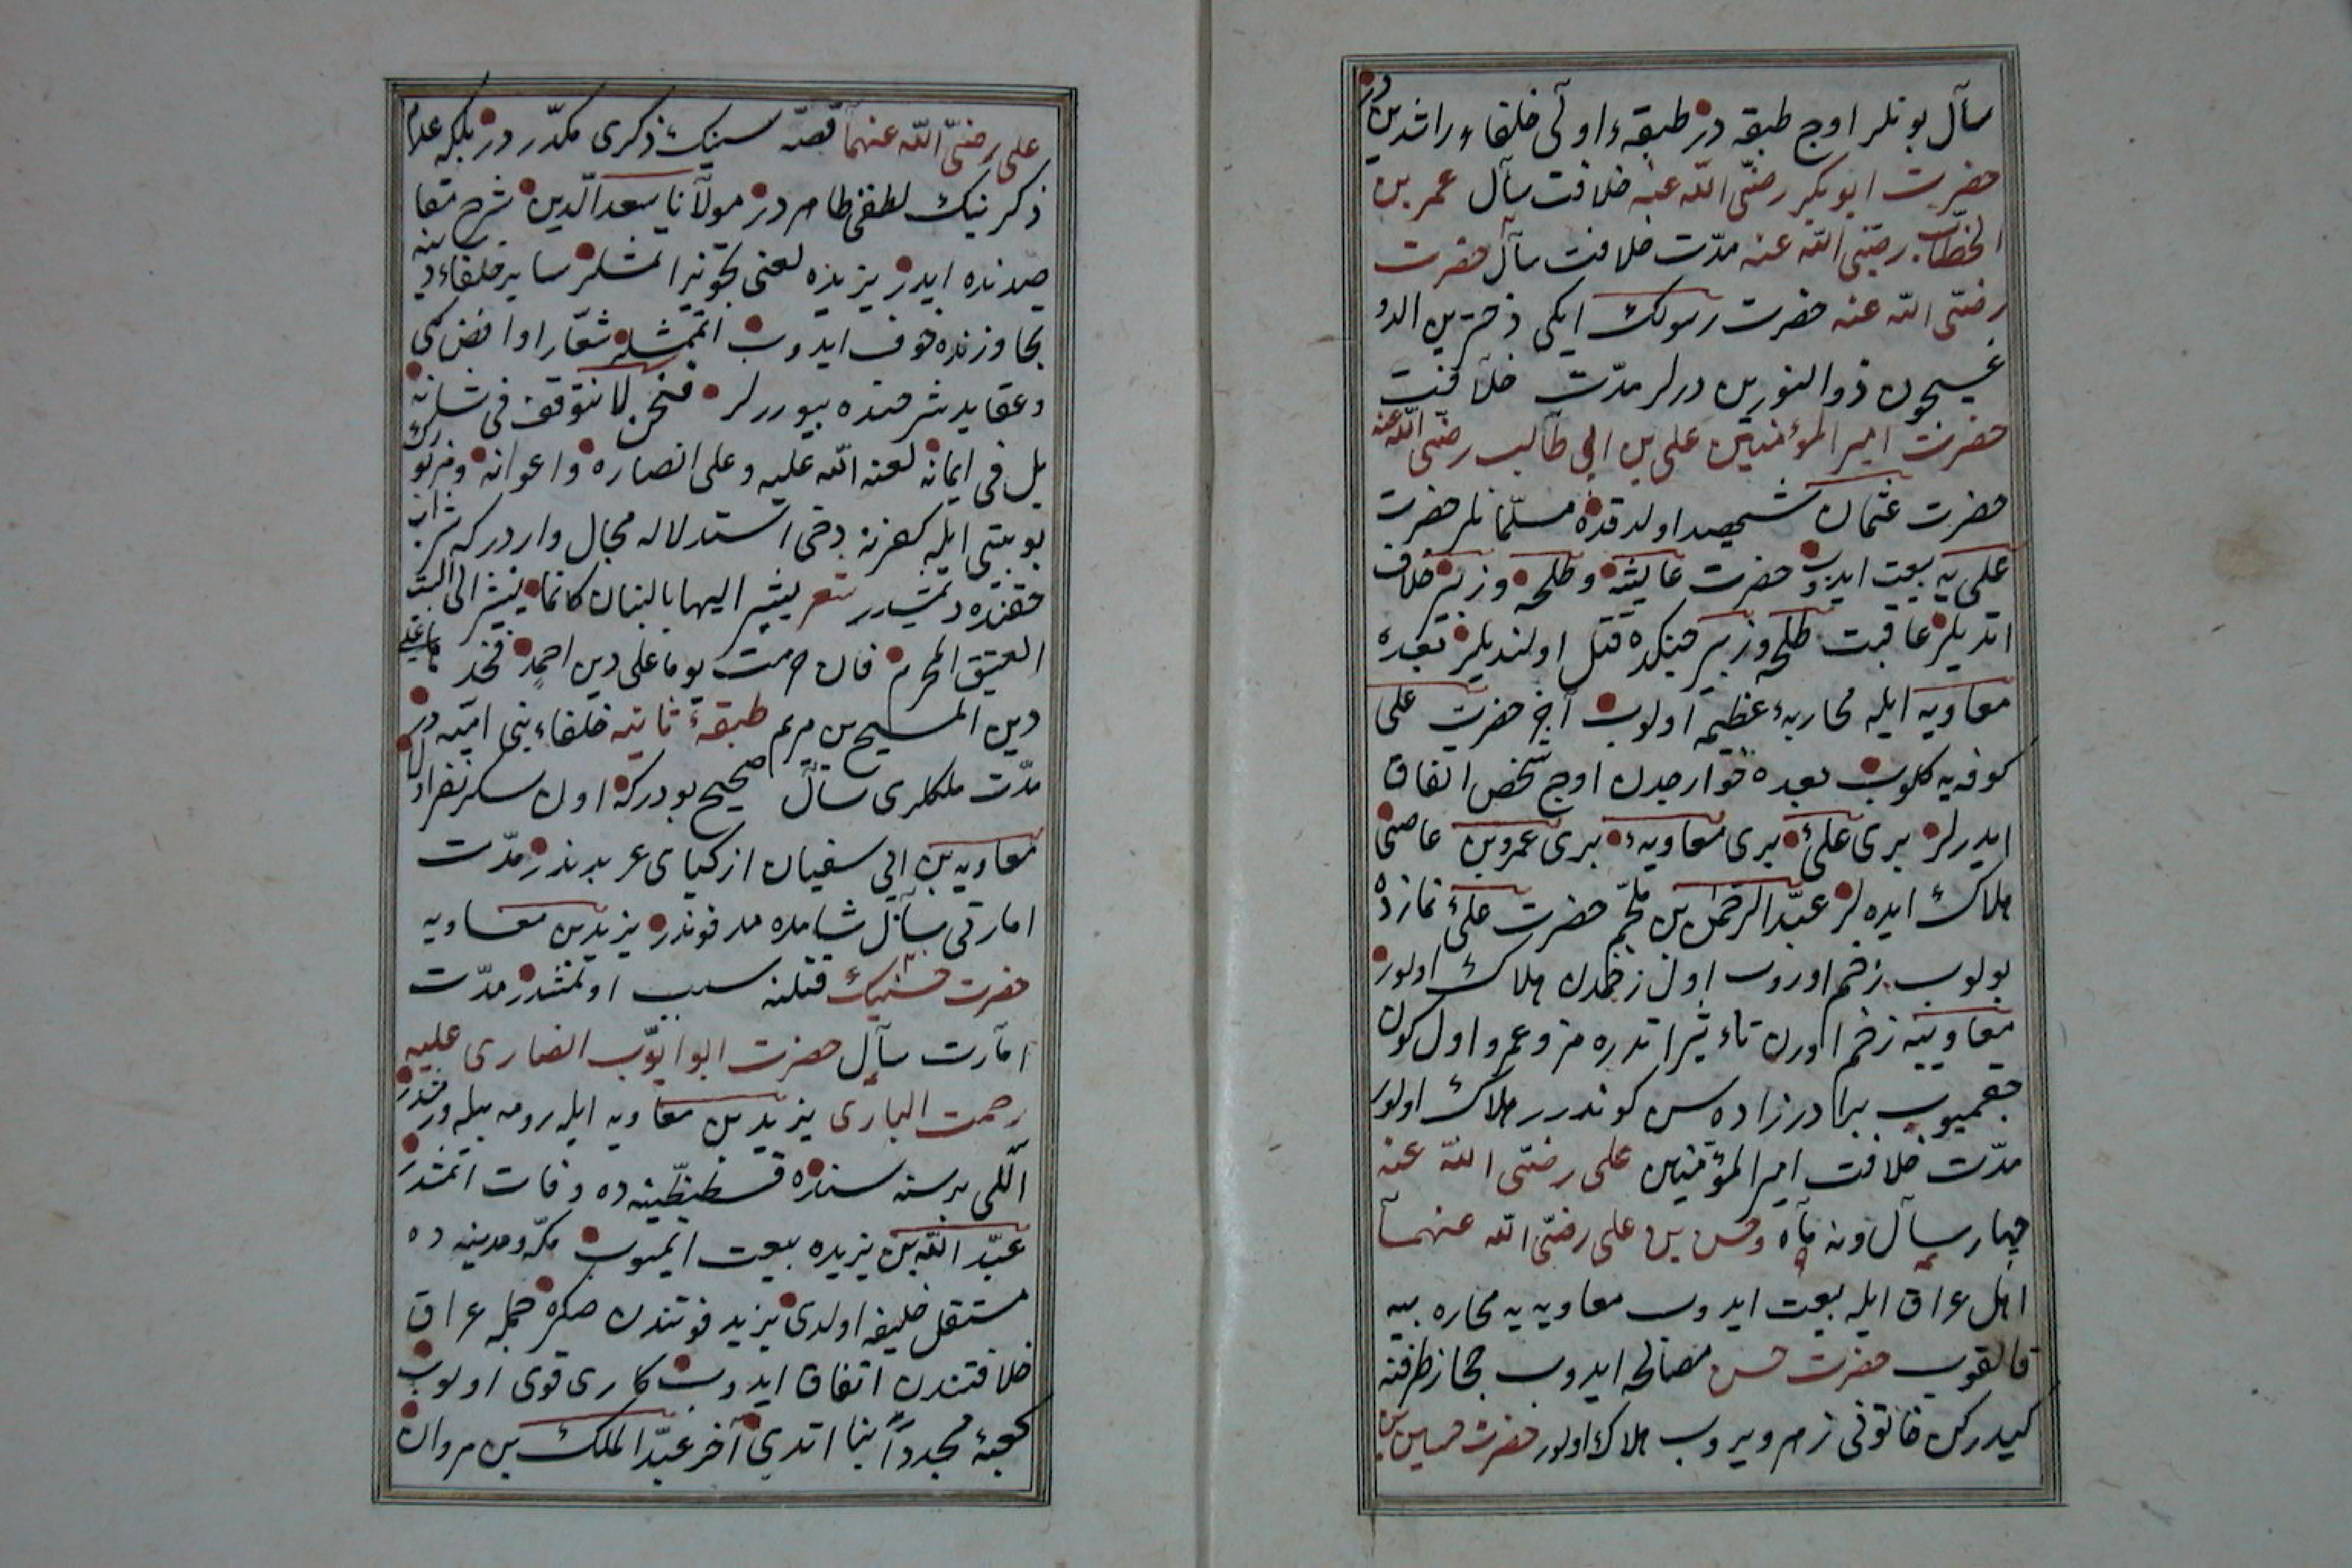 سآل بونلر اوج طبقه در طبقهء اولی خلفاء راشدین در
حضرت ابو بکر رضی الله عنه خلافت سآل عمر بن
الخطاب رضی الله عنه مدّت خلافت سآل حضرت
رضی الله عنه حضرت رسولک ایکی دخترین الدو
غیچون ذو النورین درلر مدّت خلافت
حضرت امیر المؤمنین علی بن ابی طالب رضی الله عنه
حضرت عثمان شهید اولدقده مسلمانلر حضرت
علی یه بیعت ایدوب حضرت عایشه و طلحه و زبیر خلاف
اتدیلر عاقبت طلحه و زبیر جنکده قتل اولندیلر بعده
معاویه ایله محاربهء عظیم اولوب آخر حضرت علی
کوفه یه کلوب بعده خوارجدن اوج شخص اتفاق
ایدرلر بری علی بری معاویه بری عمرو بن عاصی
هلاک ایده لر عبد الرحمن بن ملجم حضرت علی نمازده
بولوب زخم اوروب اول زخمدن هلاک اولور
معاویه زخم اورن تاءثیر اتدره مز و عمرو اول کون
چقمیوب برادر زاده سن کوندرر هلاک اولور
مدّت خلافت امیر المؤمنین علی رضی الله عنه
چهار سآل و نه مآه و حسن بن علی رضی الله عنهمآ
اهل عراق ایله بیعت ایدوب معاویه یه محاربه یه
قالقوب حضرت حسن مصالحه ایدوب حجاز طرفنه
کیدرکن خاتونی زهر ویروب هلاک اولور حضرت حسین بن
علی رضی الله عنهمآ قصّه سنک ذکری مکدّر در بلکه علام
ذکرینک لطفی ظاهر در مولآنا سعد الدین شرح مقا
صدنده ایدر یزیده لعنی تجویز اتمشلر سایر خلفاء دینه
تجاوزنده خوف ایدوب اتمشلر شعار روافض کبی
و عقاید شرحنده بیوررلر فنحن لا نتوقف فی شانه
بل فی ایمانه لعنه الله علیه و علی انصاره و اعوانه
بو بیتی ایله کفرنه دخی استدلاله مجال واردر که شراب
حقنده دیمشدر شعر یشیر الیها بالبنان کانما یشیر الی البیت
العتیق المحرم فان حرمت یوما علی دین احمد فخذ ها علی
دین المسیح بن مریم طبقهء ثانیه خلفاء بنی امیه در
مدّت ملکلری سآل صحیح بودر که اول سکز نفر اول
معاویه بن ابی سفیان ازکیای عربدندر مدّت
امارتی سآل شامده مدفوندر یزید بن معاویه
حضرت حسینک قتلنه سبب اولمشدر مدّت
امآرت سآل حضرت ابو ایّوب انصاری علیه
رحمت الباری یزید بن معاویه ایله رومه بیله
اللی بر سنه سنده قسطنطینیه ده وفات اتمشدر
عبد الله بن یزیده بیعت ایتمیوب مکّه و مدینه ده
مستقل خلیفه اولدی یزید فوتندن صکره جمله عراق
خلافتندن اتفاق ایدوب کاری قوی اولوب
کعبهء مجدداً بنا اتدی آخر عبد الملک بن مروان